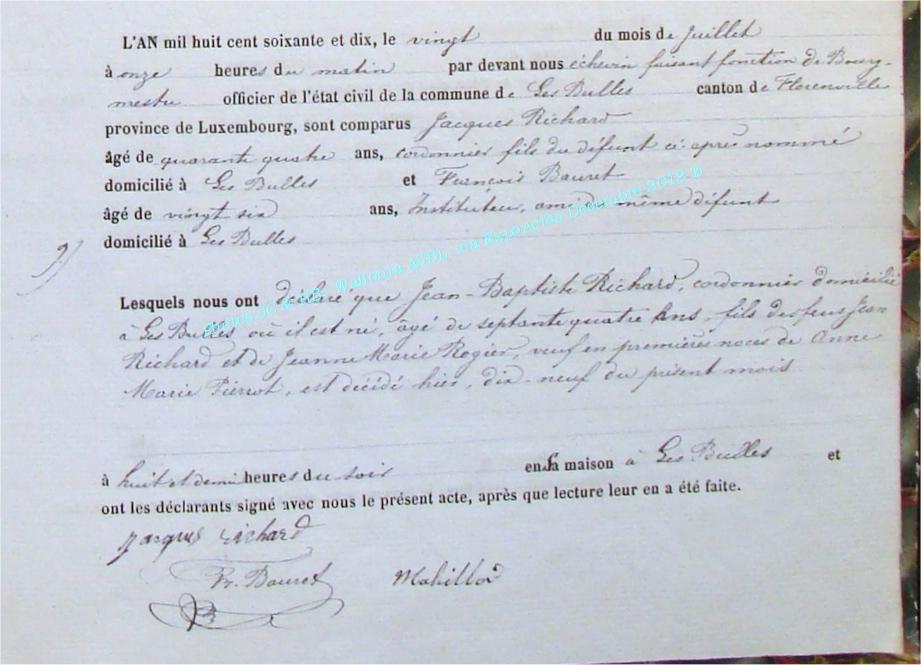 L'AN mil huit cent soixante et dix, le vingt du mois de Juillet
à onze heures du matin par devant nous échevin faisant fonction de Bourg-
mestre officier de l'état civil de la commune de Les Bulles canton de Florenville
province de Luxembourg, sont comparus Jacques Richard
âgé de quarante quatre ans, cordonnier fils du défunt ci après nommé
domicilié à Les Bulles et François Bauret
âgé de vingt six ans, Instituteur, ami du même défunt
domicilié à Les Bulles
Lesquels nous ont déclaré que Jean-Baptiste Richard, cordonnier domicilié
à Les Bulles où il est né, âgé de septante quatre ans, fils des feus Jean
Richard et de Jeanne Marie Rogier, veuf en premières noces de Anne
Marie Pierrot, est décédé hier, dix-neuf du présent mois
à huit et demi heures du soir en sa maison à Les Bulles et
ont les déclarants signé avec nous le présent acte, après que lecture leur en a été faite.
Jacques Richard
Fr. Bauret Mahillon